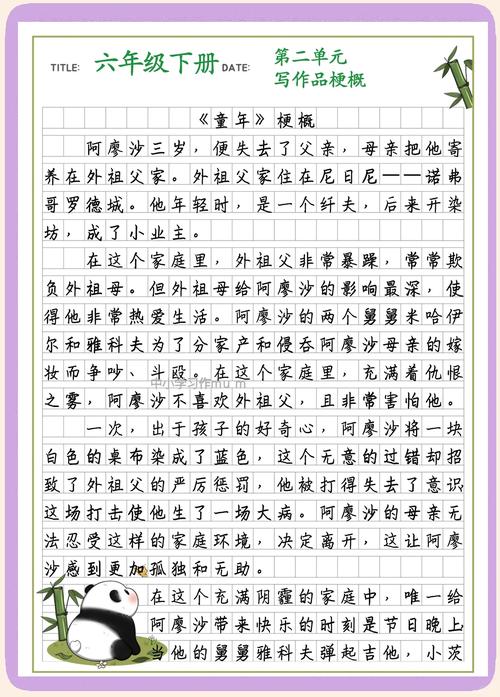 TITLE: 六年级下册 DATE: 第二单元
写作品梗概
《童年》梗概
阿廖沙三岁，便失去了父亲，母亲把他寄
养在外祖父家。外祖父家住在尼日尼——诺弗
哥罗德城。他年轻时，是一个纤夫，后来开染
坊，成了小业主。
在这个家庭里，外祖父非常暴躁，常常欺
负外祖母。但外祖母给阿廖沙的影响最深，使
得他非常热爱生活。阿廖沙的两个舅舅米哈伊
尔和雅科夫为了分家产和侵吞阿廖沙母亲的嫁
妆而争吵、斗殴。在这个家庭里，充满着仇恨
中小学习作mu m
之雾，阿廖沙不喜欢外祖父，且非常害怕他。
一次，出于孩子的好奇心，阿廖沙将一块
白色的桌布染成了蓝色，这个无意的过错却招
致了外祖父的严厉惩罚，他被打得失去了意识
这场打击使他生了一场大病。阿廖沙的母亲无
法忍受这样的家庭环境，决定离开，这让阿廖
沙感到更加孤独和无助。
在这个充满阴霾的家庭中，唯一给
阿廖沙带来快乐的时刻是节日晚上
当他的舅舅雅科夫弹起吉他，小茨